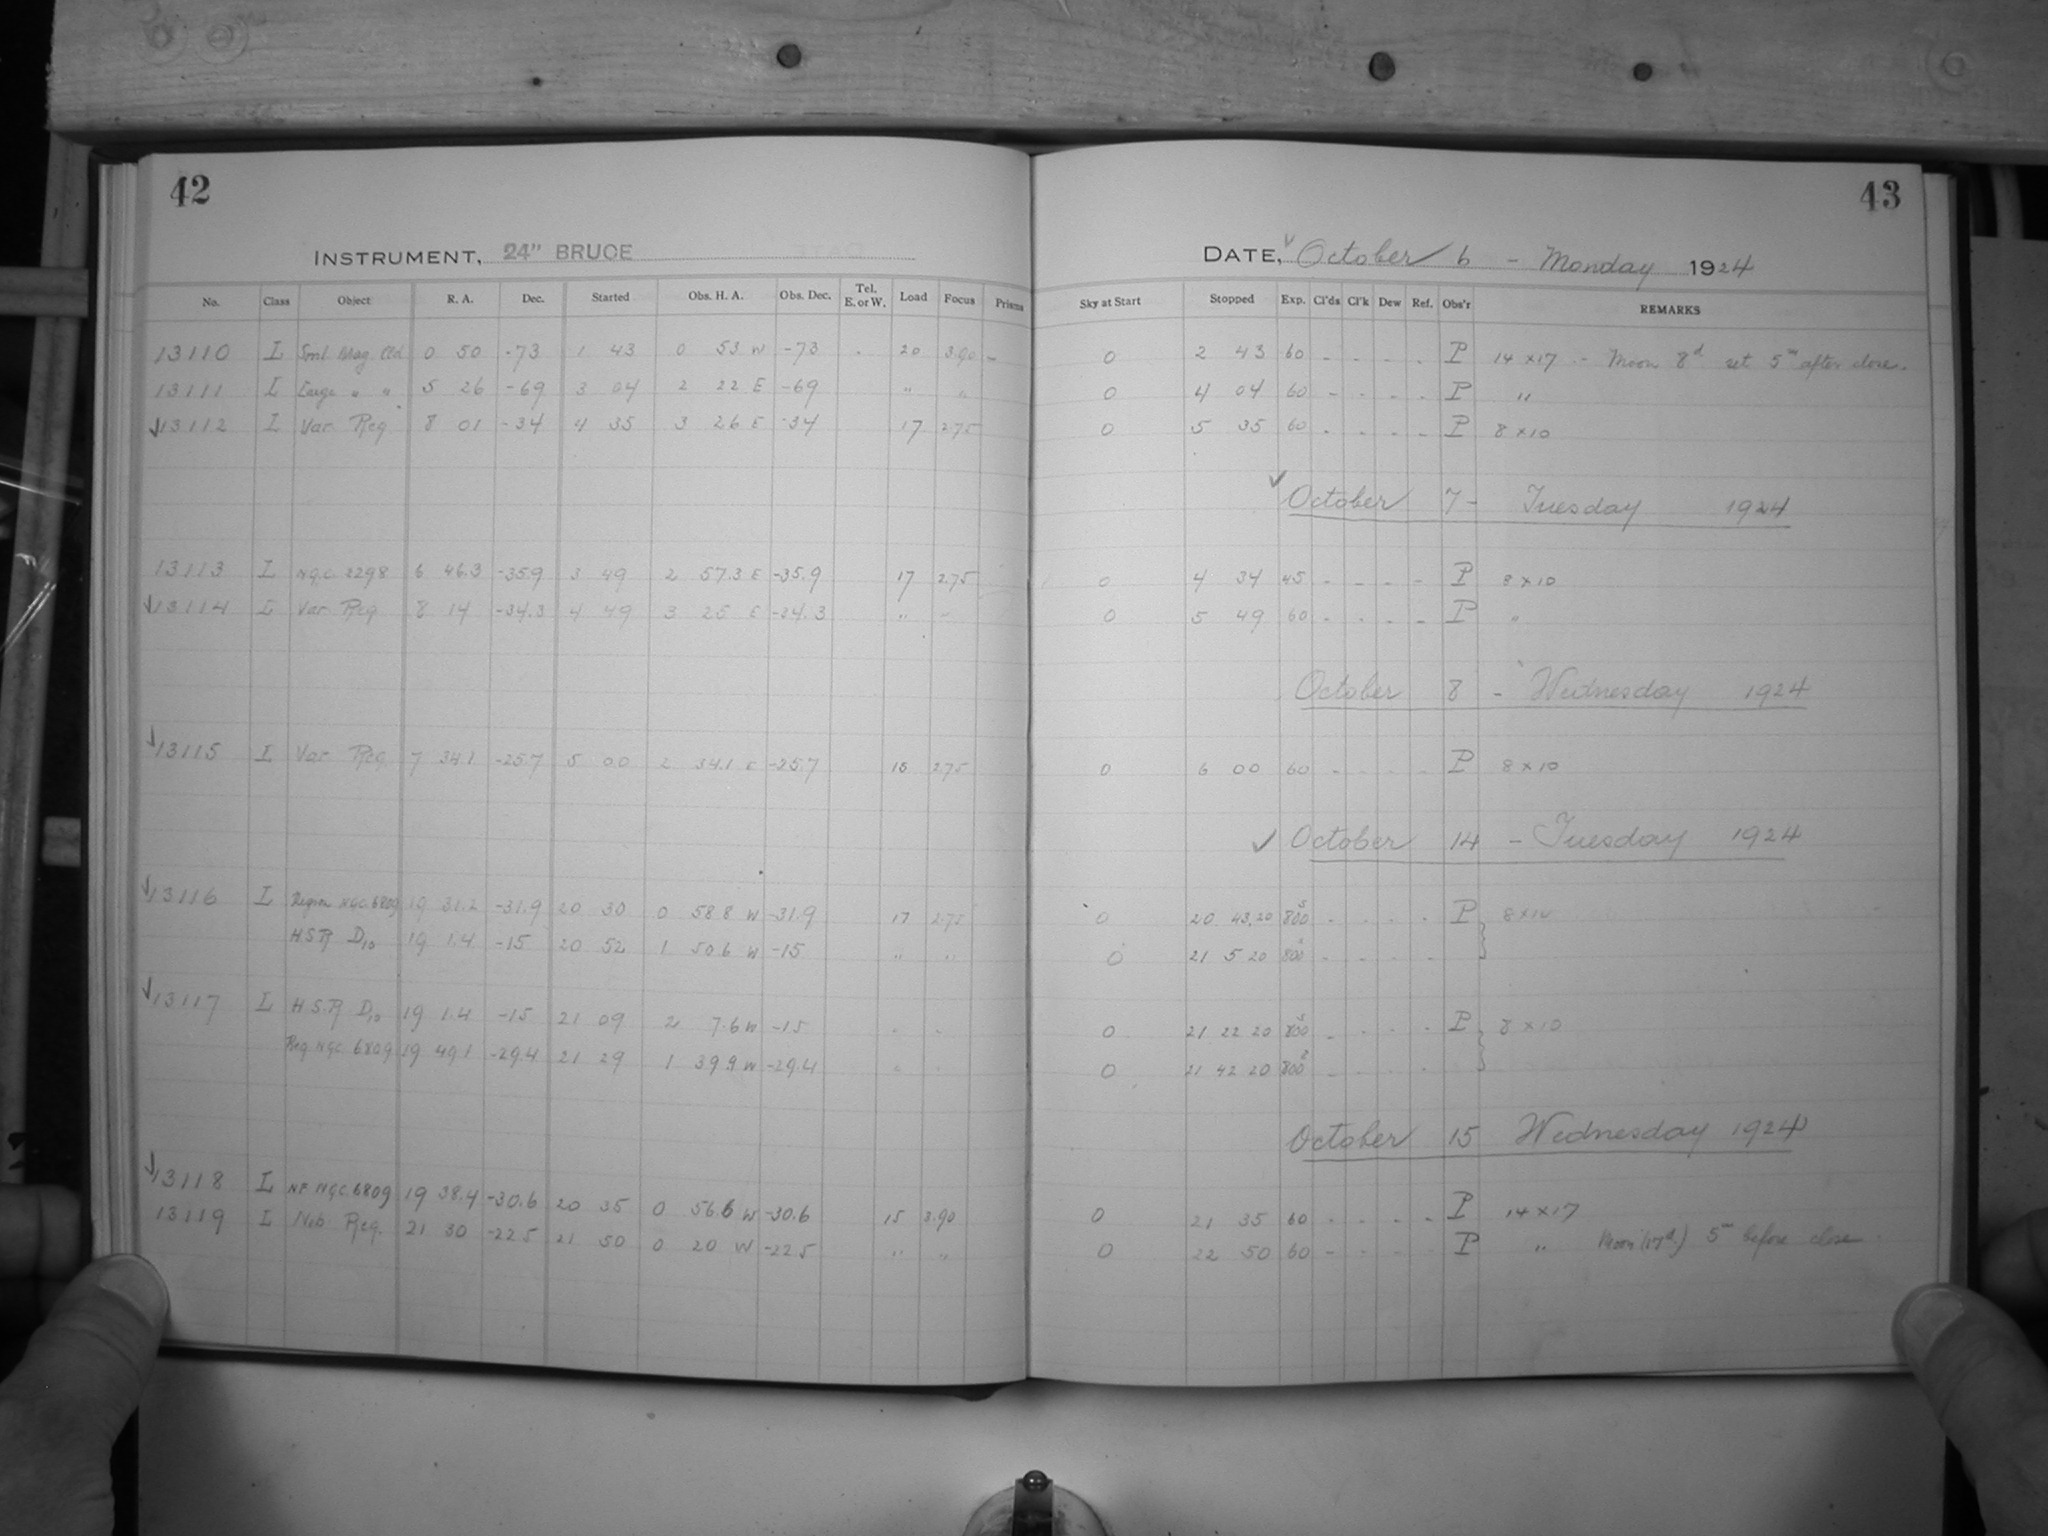 42
INSTRUMENT, 24" BRUCE
No. Class Object R. A. Dec. Started Obs. H. A. Obs. Dec. Tel. E. or W. Load Focus Prisms
13110 I Sml Mag Cld 0 50 -73 1 43 0 53 W -73 20 3.90 -
13111 I Large " " 5 26 -69 3 04 2 22 E -69 " "
✓13112 I Var Reg 8 01 -34 4 35 3 26 E -34 17 2.75
13113 I N.G.C 2298 6 46.3 -35.9 3 49 2 57.3 E -35.9 17 2.75
✓13114 I Var Reg 8 14 -34.3 4 49 3 25 E -34.3 " "
✓13115 I Var Reg 7 34.1 -25.7 5 00 2 34.1 E -25.7 15 2.75
✓13116 I Region N.G.C. 6809 19 31.2 -31.9 20 30 0 58.8 W -31.9 17 2.75
H.S.R D10 19 1.4 -15 20 52 1 50.6 W -15 " "
✓13117 I H.S.R D10 19 1.4 -15 21 09 2 7.6 W -15 " "
Reg N.G.C. 6809 19 49.1 -29.4 21 29 1 39.9 W -29.4 " "
✓13118 I NF N.G.C. 6809 19 38.4 -30.6 20 35 0 56.6 W -30.6 15 3.90
13119 I Neb Reg. 21 30 -22.5 21 50 0 20 W -22.5 " "
43
DATE, ✓ October 6 - Monday 1924
Sky at Start Stopped Exp. Cl'ds Cl'k Dew Ref. Obs'r REMARKS
0 2 43 60 - - - - P 14 x 17 - Moon 8d set 5m after close.
0 4 04 60 - - - - P "
0 5 35 60 - - - - P 8 x 10
✓ October 7 - Tuesday 1924
0 4 34 45 - - - - P 8 x 10
0 5 49 60 - - - - P "
October 8 - Wednesday 1924
0 6 00 60 - - - - P 8 x 10
✓ October 14 - Tuesday 1924
0 20 43,20 800s - - - - P 8 x 10
0 21 5 20 800s - - - -
0 21 22 20 800s - - - - P 8 x 10
0 21 42 20 800s - - - -
October 15 Wednesday 1924
0 21 35 60 - - - - P 14 x 17
0 22 50 60 - - - - P " Moon (17d.) 5m before close